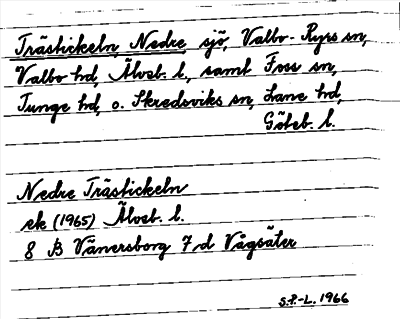 Trästickeln, Nedre, sjö, Valbo-Ryrs sn,
Valbo hd, Älvsb. l., samt Foss sn,
Tunge hd, o. Skredsviks sn, Lane hd,
Göteb. l.
Nedre Trästickeln
ek (1965) Älvsb. l.
8 B Vänersborg 7 d Vågsäter
S.P.-L. 1966